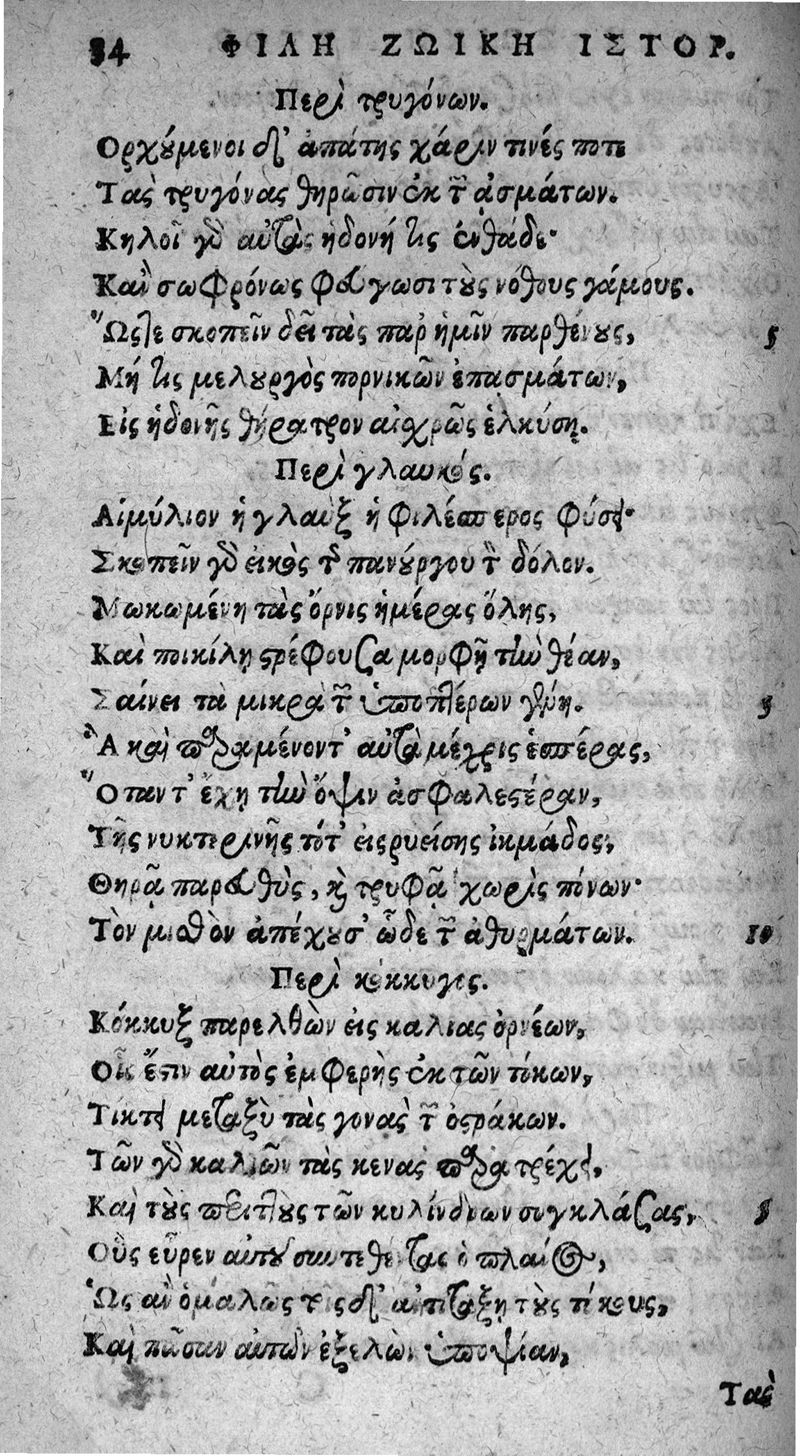 34 ΦΙΛΗ ΖΩΙΚΗ ΙΣΤΟΡ.
Περὶ τρυγόνων.
Ορχούμενοι δ' ἀπάτης χάριν τινές ποτε
Τὰς τρυγόνας θηρῶσιν ἐκ τῶν ᾀσμάτων.
Κηλοῖ γὰρ αὐτὰς ἡδονή τις ἐνθάδε·
Κἂν σωφρόνως φεύγωσι τοὺς νόθους γάμους.
Ὥστε σκοπεῖν δεῖ τὰς παρ' ἡμῖν παρθένους, 5
Μή τις μελουργὸς πορνικῶν ἐπᾳσμάτων,
Εἰς ἡδονῆς θήρατρον αἰσχρῶς ἑλκύσῃ.
Περὶ γλαυκός.
Αἱμύλιον ἡ γλαῦξ ἡ φιλέσπερος φύσει·
Σκοπεῖν γὰρ εἰκὸς τοῦ πανούργου τὸν δόλον.
Μωκωμένη τὰς ὄρνις ἡμέρας ὅλης,
Καὶ ποικίλῃ στρέφουσα μορφῇ τὴν θέαν,
Σαίνει τὰ μικρὰ τῶν ὑποπτέρων γένη. 5
Ἃ καὶ παραμένοντ' αὐτὰ μέχρις ἑσπέρας,
Ὅταν τ' ἔχῃ τὴν ὄψιν ἀσφαλεστέραν,
Τῆς νυκτερινῆς τότ' εἰσρυείσης ἰκμάδος,
Θηρᾷ παρευθὺς, καὶ τρυφᾷ χωρὶς πόνων·
Τὸν μισθὸν ἀπέχουσ' ὧδε τῶν ἀθυρμάτων. 10
Περὶ κόκκυγος.
Κόκκυξ παρελθὼν εἰς καλιὰς ὀρνέων,
Οἷς ἔστιν αὐτὸς ἐμφερὴς ἐκ τῶν τόκων,
Τίκτει μεταξὺ τὰς γονὰς τῶν ὀστράκων.
Τῶν γὰρ καλιῶν τὰς κενὰς παρατρέχει,
Καὶ τοὺς περιττοὺς τῶν κυλίνδρων συγκλάσας, 5
Οὓς εὗρεν αὐτοῦ συντεθείσας ὁ πλάνος,
Ὡς ἂν ὁμαλῶς τοῖσδ' ἀντιτάξῃ τοὺς τόκους,
Καὶ πᾶσαν αὐτῶν ἐξελὼν ὑποψίαν,
Τὰς